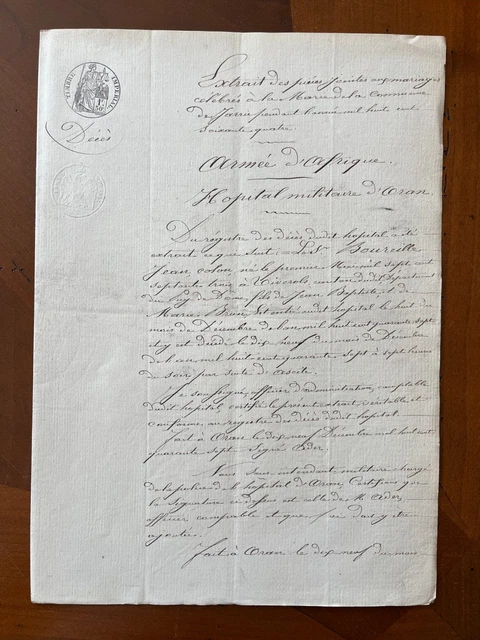 TIMBRE IMPERIAL
Décès
Extrait des pièces jointes aux mariages
célébrés à la Mairie de la Commune
de Jarrie pendant l'année mil huit cent
soixante quatre.
Armée d'Afrique.
Hopital militaire d'Oran.
Du régistre des décès dudit hopital a été
extrait ce qui suit: Le Sr Boureille
Jean colon né le premier mil sept cent
septante trois à canton dudit Département
du Puy de Dôme, fils de Jean Baptiste & de
Marie est entré audit hopital le huit du
mois de Décembre de l'an mil huit cent quarante sept
et y est décédé le dix neuf du mois de Décembre
de l'an mil huit cent quarante sept à sept heures
du soir par suite de ascite.
Je soussigné, officier d'administration, comptable
dudit hopital, certifie le présent extrait, véritable et
conforme, au régistre des décès dudit hopital.
fait à Oran le dix neuf Décembre mil huit cent
quarante sept. Signé
Nous sous intendant militaire chargé
de la police de l'hopital d'Oran, Certifions que
la signature ci dessus est celle de M.
officier comptable et que foi doit y être
ajoutée.
fait à Oran le dix neuf du mois